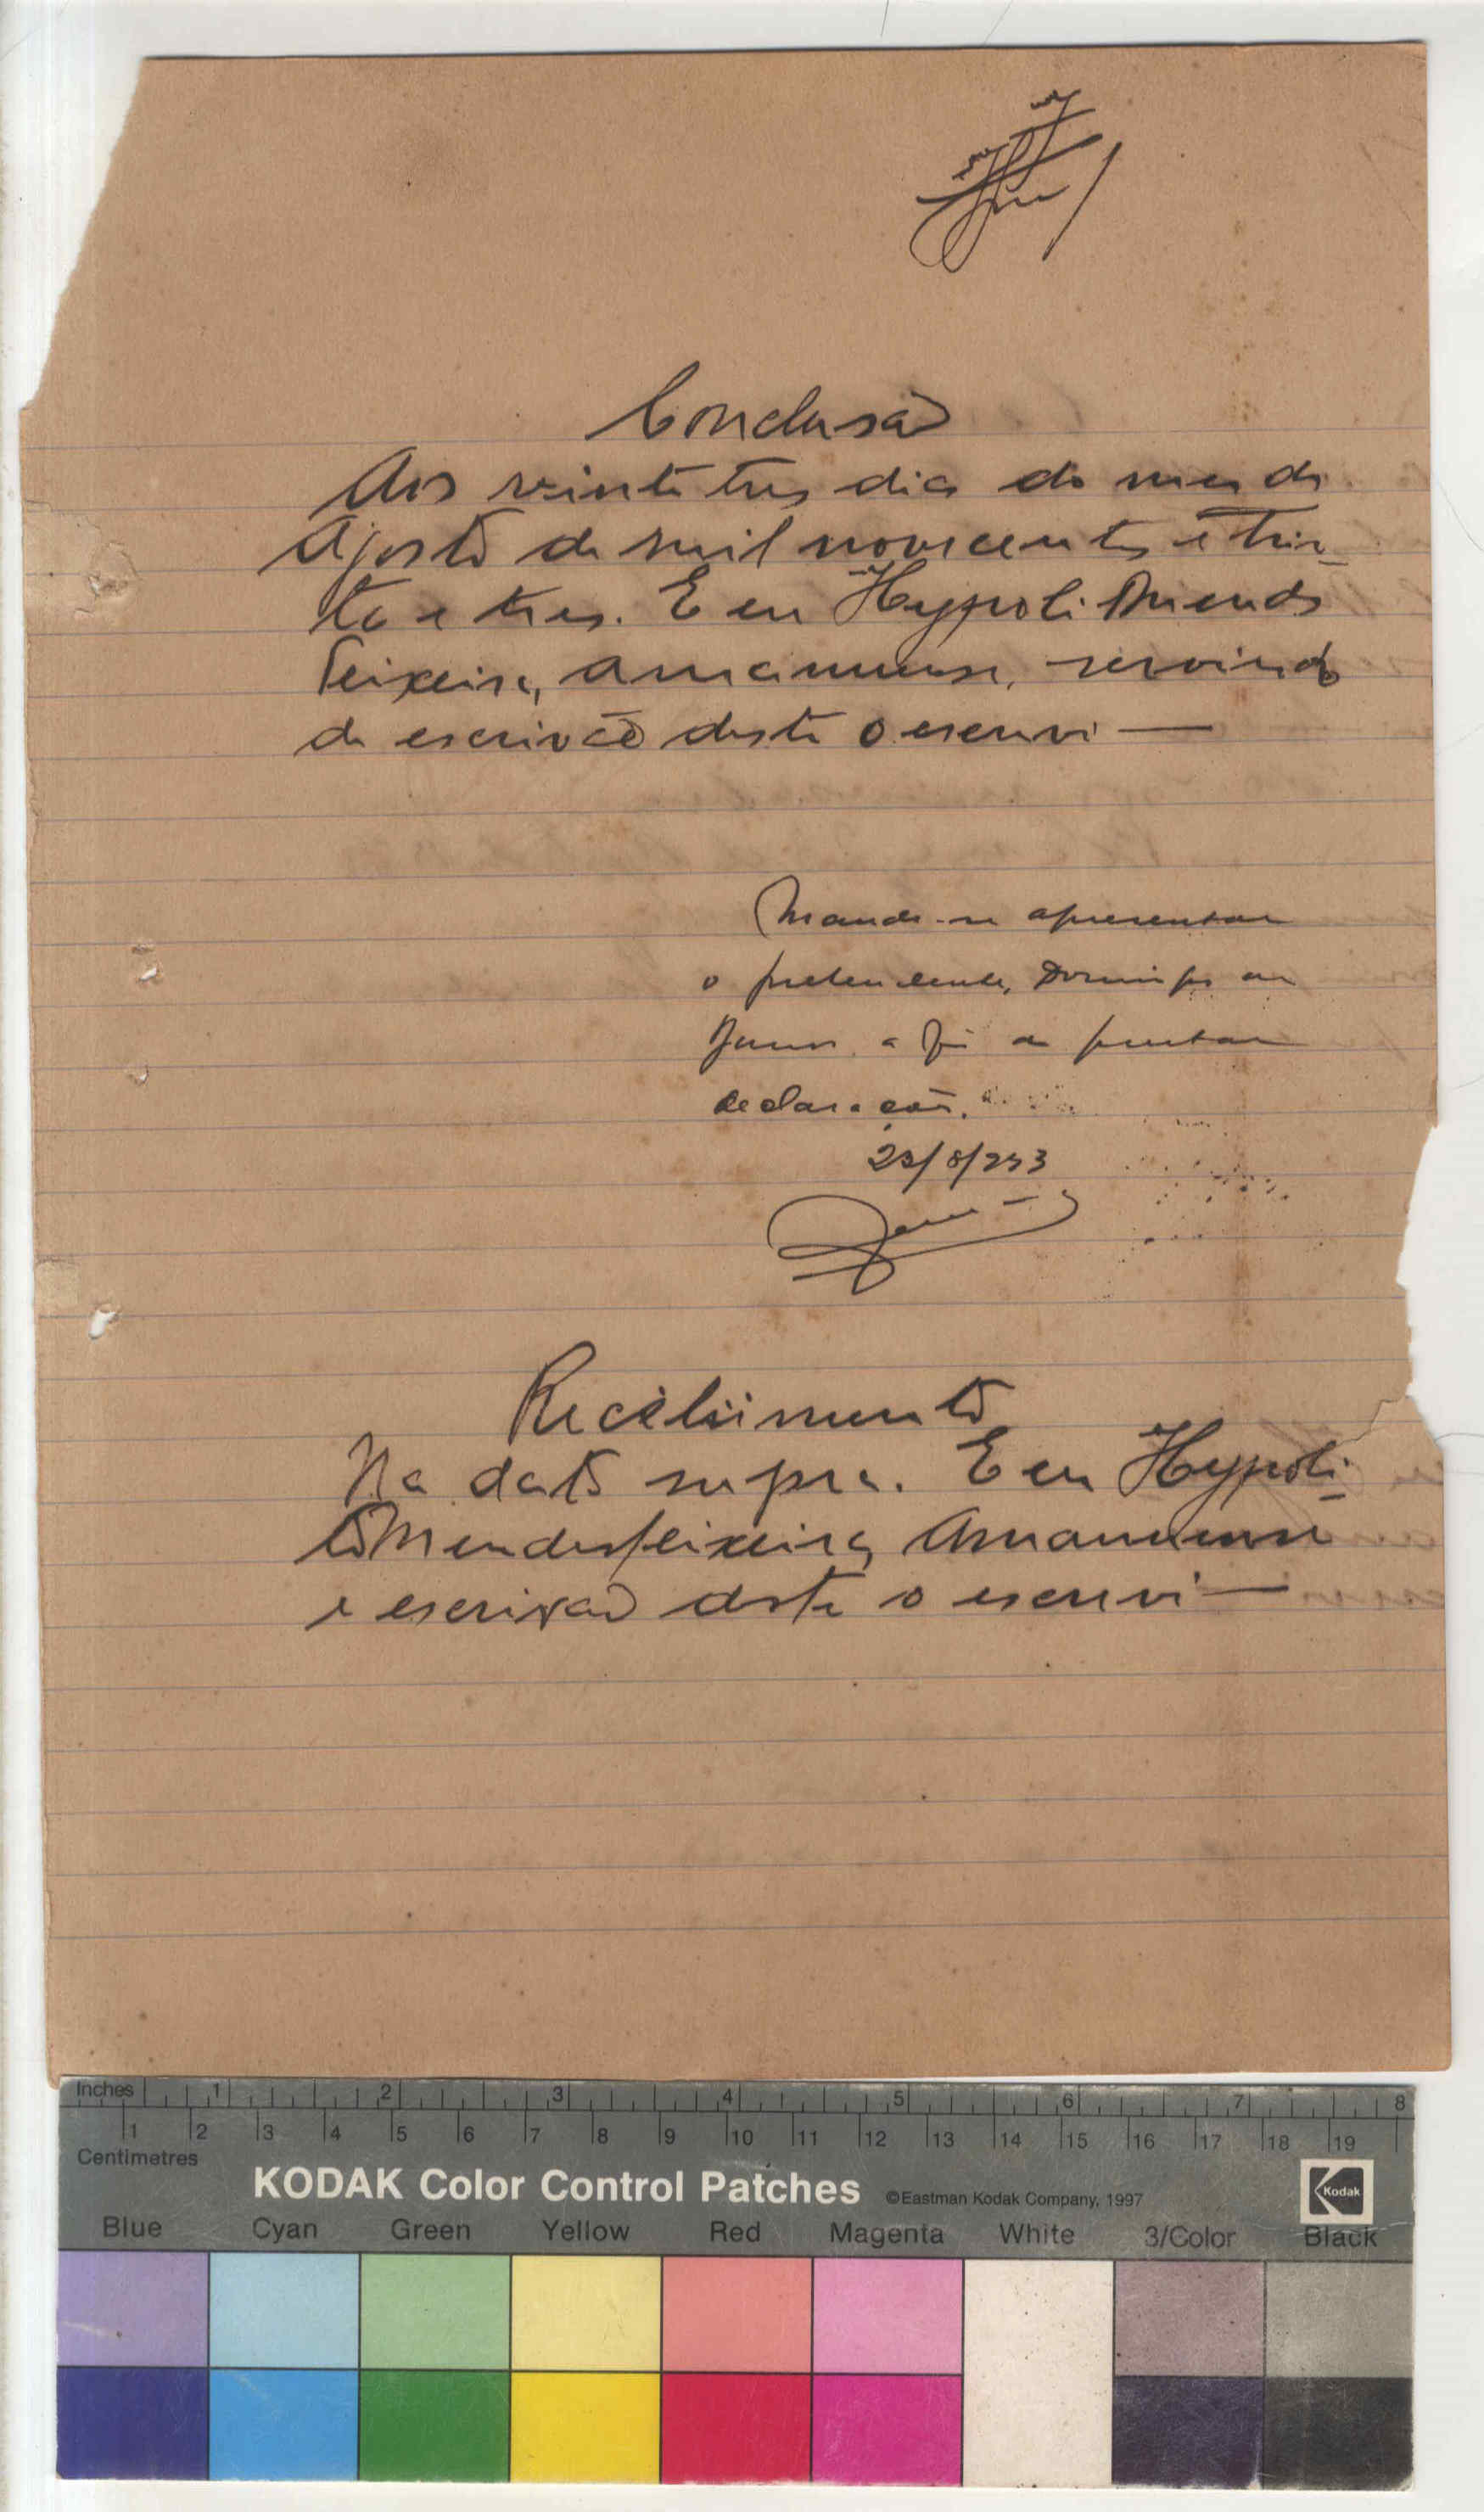 Conclusão
Aos vinte tres dias do mes de
Agosto de mil novecentos e trin-
ta e tres. E eu Hypoli Mendes
Teixeira, amanuense, servindo
de escrivão deste o escrevi —
Mande-se apresentar
o pretendente, Domingos
a fim de prestar
declarações.
Recebimento
Na data supra. E eu Hypoli-
to Mendes Teixeira, Amanuense
e escrivão deste o escrevi —
Inches 1 2 3 4 5 6 7 8
1 2 3 4 5 6 7 8 9 10 11 12 13 14 15 16 17 18 19
Centimetres
KODAK Color Control Patches ©Eastman Kodak Company, 1997 Kodak
Blue Cyan Green Yellow Red Magenta White 3/Color Black